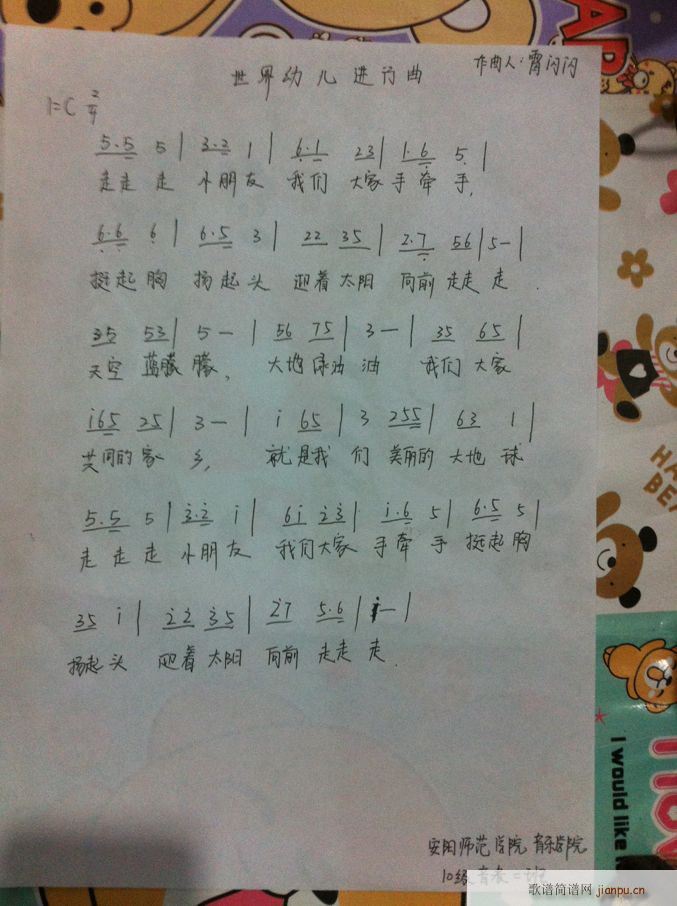 世界幼儿进行曲 作曲人:霄闪闪
1=C 2/4
5.5 5 | 3.2 1 | 6.1 23 | 1.6 5 |
走走 走 小朋友 我们 大家 手牵 手,
6.6 6 | 6.5 3 | 22 35 | 2.7 56 | 5 — |
挺起 胸 扬起 头 迎着 太阳 向前 走走 走.
35 53 | 5 — | 56 75 | 3 — | 35 65 |
天空 蓝朦 朦, 大地 绿油 油 我们 大家
i65 25 | 3 — | i 65 | 3 255 | 63 1 |
共同的 家 乡, 就 是我 们 美丽的 大地 球
5.5 5 | 3.2 i | 6i 23 | i.6 5 | 6.5 5 |
走 走 走 小朋友 我们大家 手牵 手 挺起 胸
35 i | 22 35 | 27 5.6 | i — |
扬起 头 迎着 太阳 向前 走走 走.
安阳师范学院 音乐学院
10级 音表二班
歌谱简谱网 jianpu.cn
HA
BE
I would like